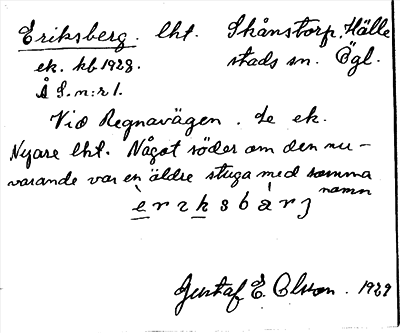 Eriksberg. lht. Skånstorp, Hälle
ek. kb 1928. stads sn. Ögl.
Å S. n:r 1.
Vid Regnavägen. Se ek.
Nyare lht. Något söder om den nu-
varande var en äldre stuga med samma
namn
èrɩksbàrj
Gustaf E. Olsson. 1929